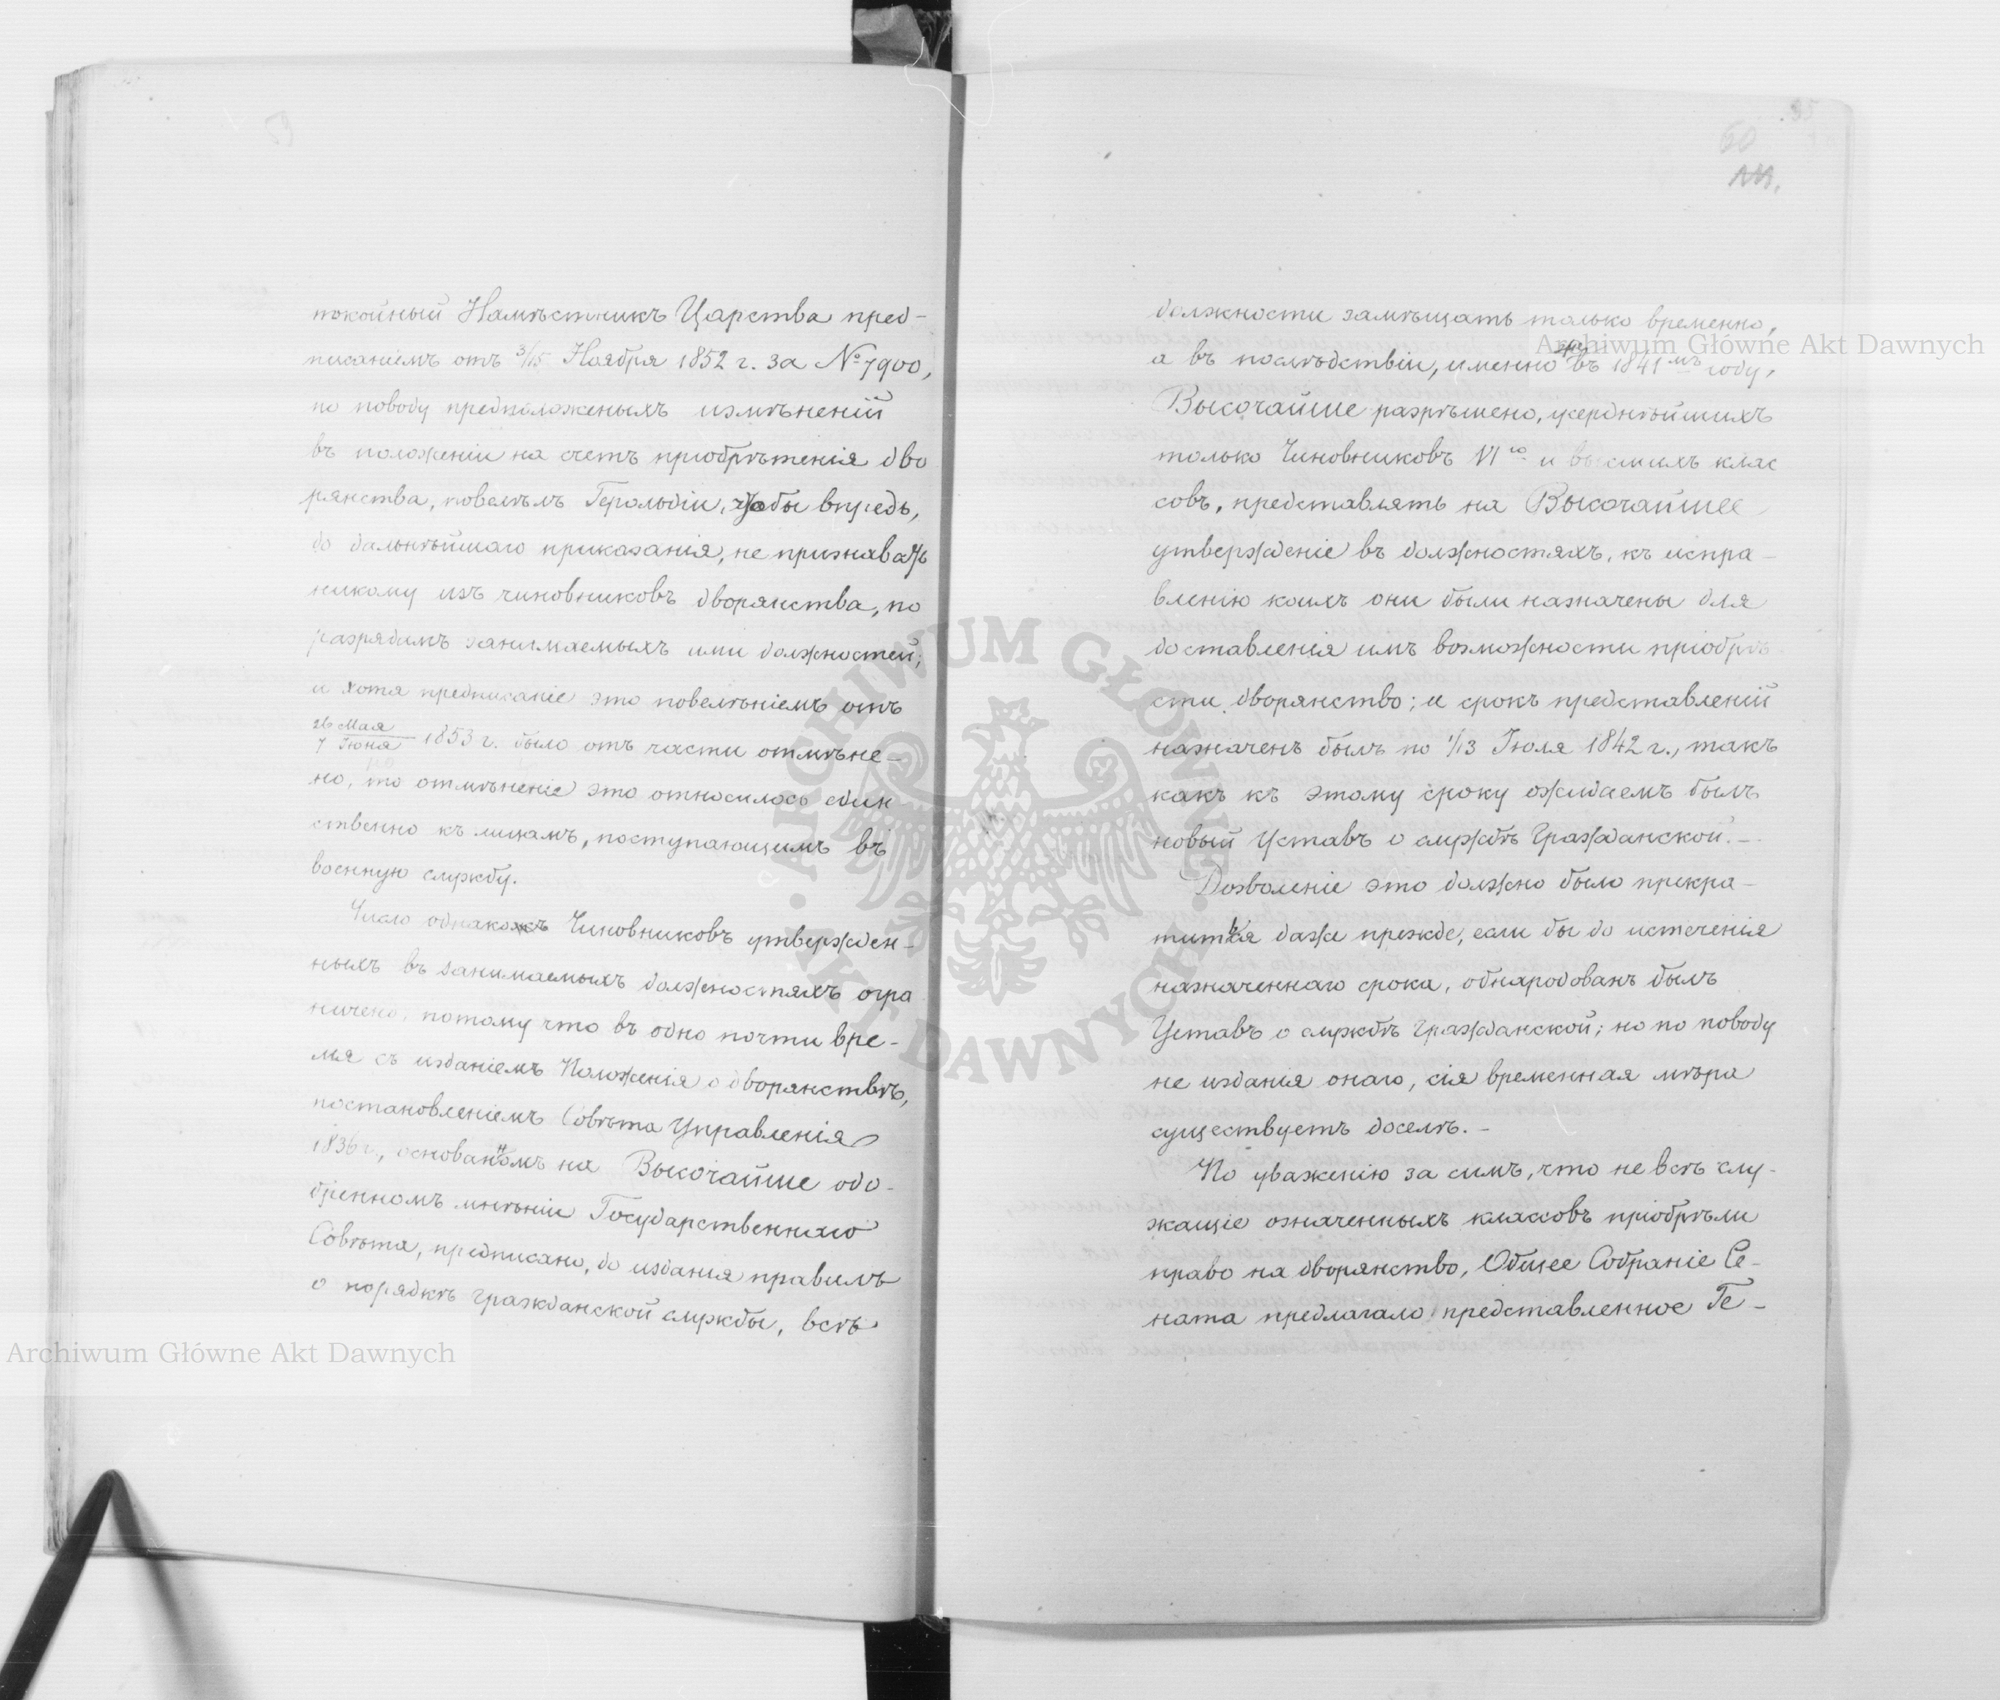 покойный Намѣстникъ Царства пред-
писаніемъ отъ 3/15 Ноября 1852 г. за № 7900,
по поводу предположеныхъ измѣненій
въ положеніи на счетъ пріобрѣтенія дво
рянства, повелѣлъ Герольдіи, чтобы впредь,
до дальнѣйшаго приказанія, не признавать
никому изъ чиновниковъ дворянства, по
разрядамъ занимаемыхъ ими должностей;
и хотя предписаніе это повелѣніемъ отъ
26 Мая
7 Іюня 1853 г. было отъ части отмѣне-
но, то отмѣненіе это относилось един
ственно къ лицамъ, поступающимъ въ
военную службу.
Число однакожъ Чиновниковъ утвержден-
ныхъ въ занимаемыхъ должностяхъ огра
ничено, потому что въ одно почти вре-
мя съ изданіемъ Положенія о дворянствѣ,
постановленіемъ Совѣта Управленія
1836 г., основанномъ на Высочайше одо-
бренномъ мнѣніи Государственнаго
Совѣта, предписано, до изданія правилъ
о порядкѣ гражданской службы, всѣ
60
должности замѣщать только временно,
а въ послѣдствіи, именно въ 1841мъ году,
Высочайше разрѣшено, усерднѣйшихъ
только Чиновниковъ VIго и высшихъ клас
совъ, представлять на Высочайшее
утвержденіе въ должностяхъ, къ испра-
вленію коихъ они были назначены для
доставленія имъ возможности пріобрѣ-
сти дворянство; и срокъ представленій
назначенъ былъ по 1/13 Іюля 1842 г., такъ
какъ къ этому сроку ожидаемъ былъ
новый Уставъ о службѣ Гражданской.-
Дозволеніе это должно было прекра-
титься даже прежде, если бы до истеченія
назначеннаго срока, обнародованъ былъ
Уставъ о службѣ гражданской; но по поводу
не изданія онаго, сія временная мѣра
существуетъ доселѣ.-
По уваженію за симъ, что не всѣ слу-
жащіе означенныхъ классовъ пріобрѣли
право на дворянство, Общее Собраніе Се-
ната предлагало представленное Ге-
Archiwum Główne Akt Dawnych
Archiwum Główne Akt Dawnych
ARCHIWUM GŁÓWNE AKT DAWNYCH